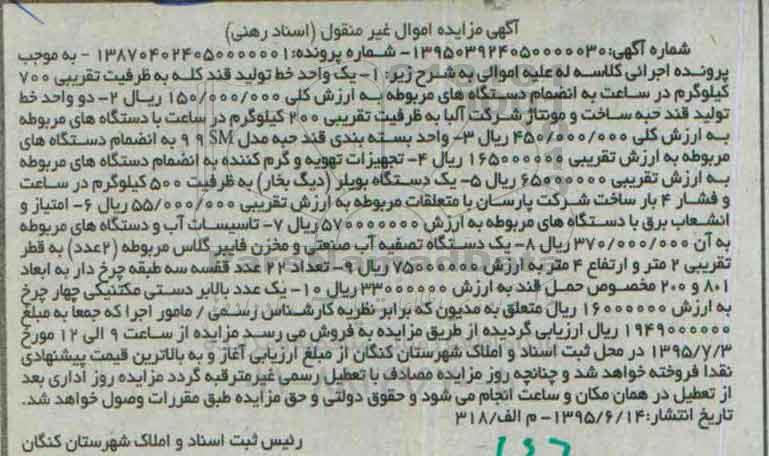 آگهی مزایده اموال غیر منقول (اسناد رهنی)
شماره آگهی: ۱۳۹۵۰۳۹۲۴۰۵۰۰۰۰۰۳۰- شماره پرونده: ۱۳۸۷۰۴۰۲۴۰۵۰۰۰۰۰۰۱ - به موجب
پرونده اجرائی کلاسه له علیه اموالی به شرح زیر: ۱- یک واحد خط تولید قند کله به ظرفیت تقریبی ۷۰۰
کیلوگرم در ساعت به انضمام دستگاه های مربوطه به ارزش کلی ۱۵۰/۰۰۰/۰۰۰ ریال ۲- دو واحد خط
تولید قند حبه ساخت و مونتاژ شرکت آلبا به ظرفیت تقریبی ۲۰۰ کیلوگرم در ساعت با دستگاه های مربوطه
به ارزش کلی ۴۵۰/۰۰۰/۰۰۰ ریال ۳- واحد بسته بندی قند حبه مدل SM ۹۹ به انضمام دستگاه های
مربوطه به ارزش تقریبی ۱۶۵۰۰۰۰۰۰ ریال ۴- تجهیزات تهویه و گرم کننده به انضمام دستگاه های مربوطه
به ارزش تقریبی ۶۵۰۰۰۰۰۰ ریال ۵- یک دستگاه بویلر (دیگ بخار) به ظرفیت ۵۰۰ کیلوگرم در ساعت
و فشار ۴ بار ساخت شرکت پارسان با متعلقات مربوطه به ارزش تقریبی ۵۵/۰۰۰/۰۰۰ ریال ۶- امتیاز و
انشعاب برق با دستگاه های مربوطه به ارزش ۵۷۰۰۰۰۰۰۰ ریال ۷- تاسیسات آب و دستگاه های مربوطه
به آن ۳۷۰/۰۰۰/۰۰۰ ریال ۸- یک دستگاه تصفیه آب صنعتی و مخزن فایبر گلاس مربوطه (۲عدد) به قطر
تقریبی ۲ متر و ارتفاع ۴ متر به ارزش ۷۵۰۰۰۰۰۰ ریال ۹- تعداد ۲۲ عدد قفسه سه طبقه چرخ دار به ابعاد
۸۰۱ و ۲۰۰ مخصوص حمل قند به ارزش ۳۳۰۰۰۰۰۰ ریال ۱۰- یک عدد بالابر دستی مکتنیکی چهار چرخ
به ارزش ۱۶۰۰۰۰۰۰ ریال متعلق به مدیون که برابر نظریه کارشناس رسمی / مامور اجرا که جمعا به مبلغ
۱۹۴۹۰۰۰۰۰۰ ریال ارزیابی گردیده از طریق مزایده به فروش می رسد مزایده از ساعت ۹ الی ۱۲ مورخ
۱۳۹۵/۷/۳ در محل ثبت اسناد و املاک شهرستان کنگان از مبلغ ارزیابی آغاز و به بالاترین قیمت پیشنهادی
نقدا فروخته خواهد شد و چنانچه روز مزایده مصادف با تعطیل رسمی غیرمترقبه گردد مزایده روز اداری بعد
از تعطیل در همان مکان و ساعت انجام می شود و حقوق دولتی و حق مزایده طبق مقررات وصول خواهد شد.
تاریخ انتشار: ۱۳۹۵/۶/۱۴- م الف/۳۱۸
رئیس ثبت اسناد و املاک شهرستان کنگان